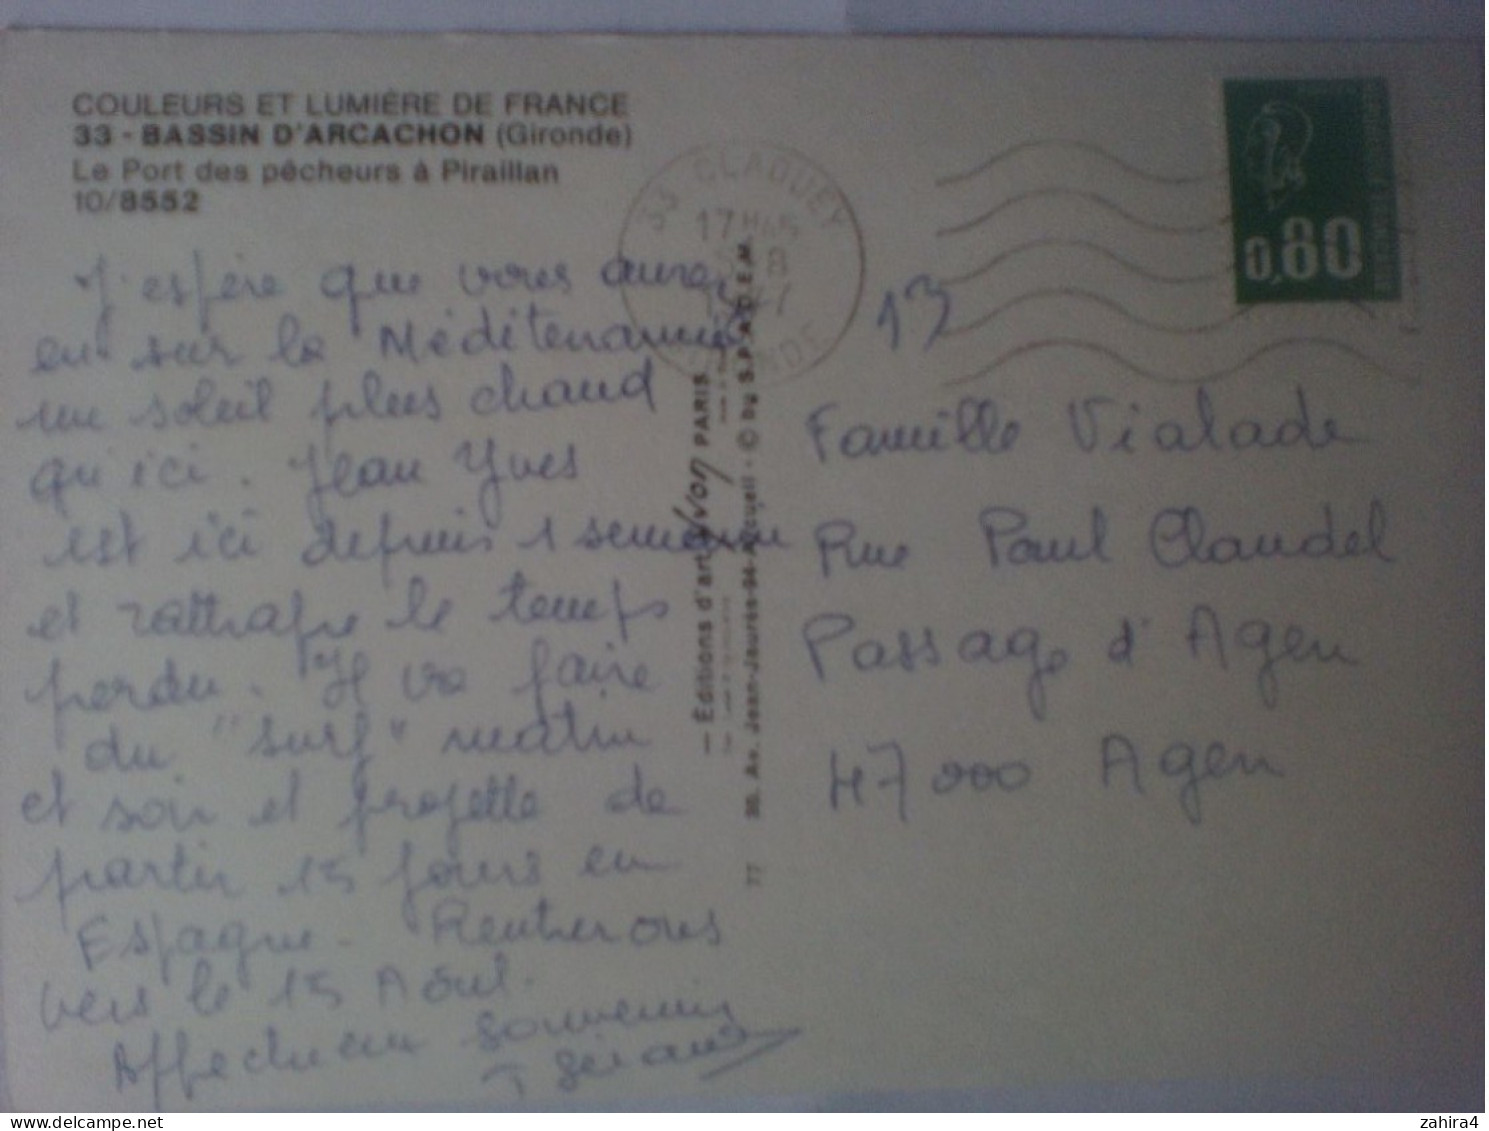 COULEURS ET LUMIÈRE DE FRANCE
33 - BASSIN D'ARCACHON (Gironde)
Le Port des pêcheurs à Piraillan
10/8552
33 CLAOUEY
17H45
GIRONDE
0,80
J'espère que vous aurez
eu sur la Méditerannée
un soleil plus chaud
qu'ici. Jean Yves
est ici depuis 1 semaine
et rattrape le temps
perdu. Il va faire
du "surf" matin
et soir et projette de
partir 15 jours en
Espagne. Rentrerons
vers le 15 Août.
Affectueux souvenir
Gérard
— Éditions d'art yvon PARIS
Av. Jean-Jaurès-94-Arcueil - © by S.P.A.D.E.M.
77
13
Famille Vialade
Rue Paul Claudel
Passage d'Agen
47000 Agen
zahira4